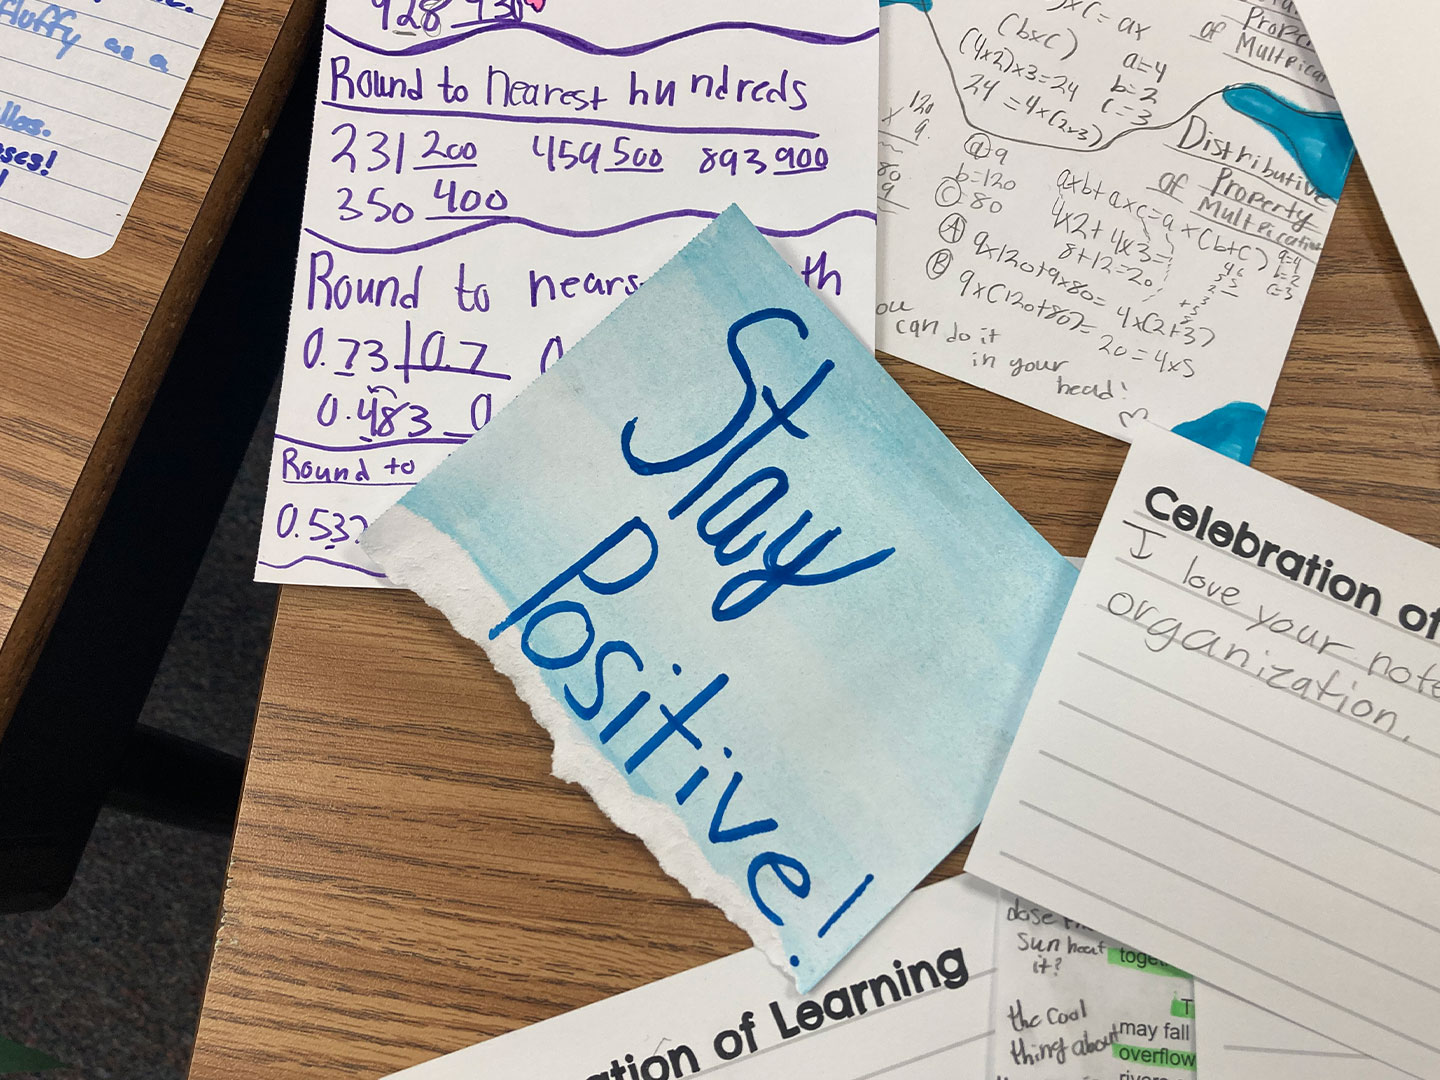 fluffy as a
928 930
Round to nearest hundreds
231 200 459 500 893 900
350 400
Round to nears th
0.73 0.7 0
0.483 0
Round to
0.533
Stay
Positive!
(bxc)
a=4
(4x2)x3=24
b=2
24=4x(2x3)
c=3
of Multipication
Distributive
Property
of Multipication
axb+axc=ax(b+c)
a=4
b=2
c=3
4x2+4x3=
8+12=20
4x(2+3)
20=4x5
120
x 9
80
9
a 9
b=120
C 80
A 9x120+9x80=
B 9x(120+80)
can do it
in your
head!
Celebration of
I love your note
organization.
ation of Learning
Sun heat
it?
the cool
thing about
T
may fall
overflow